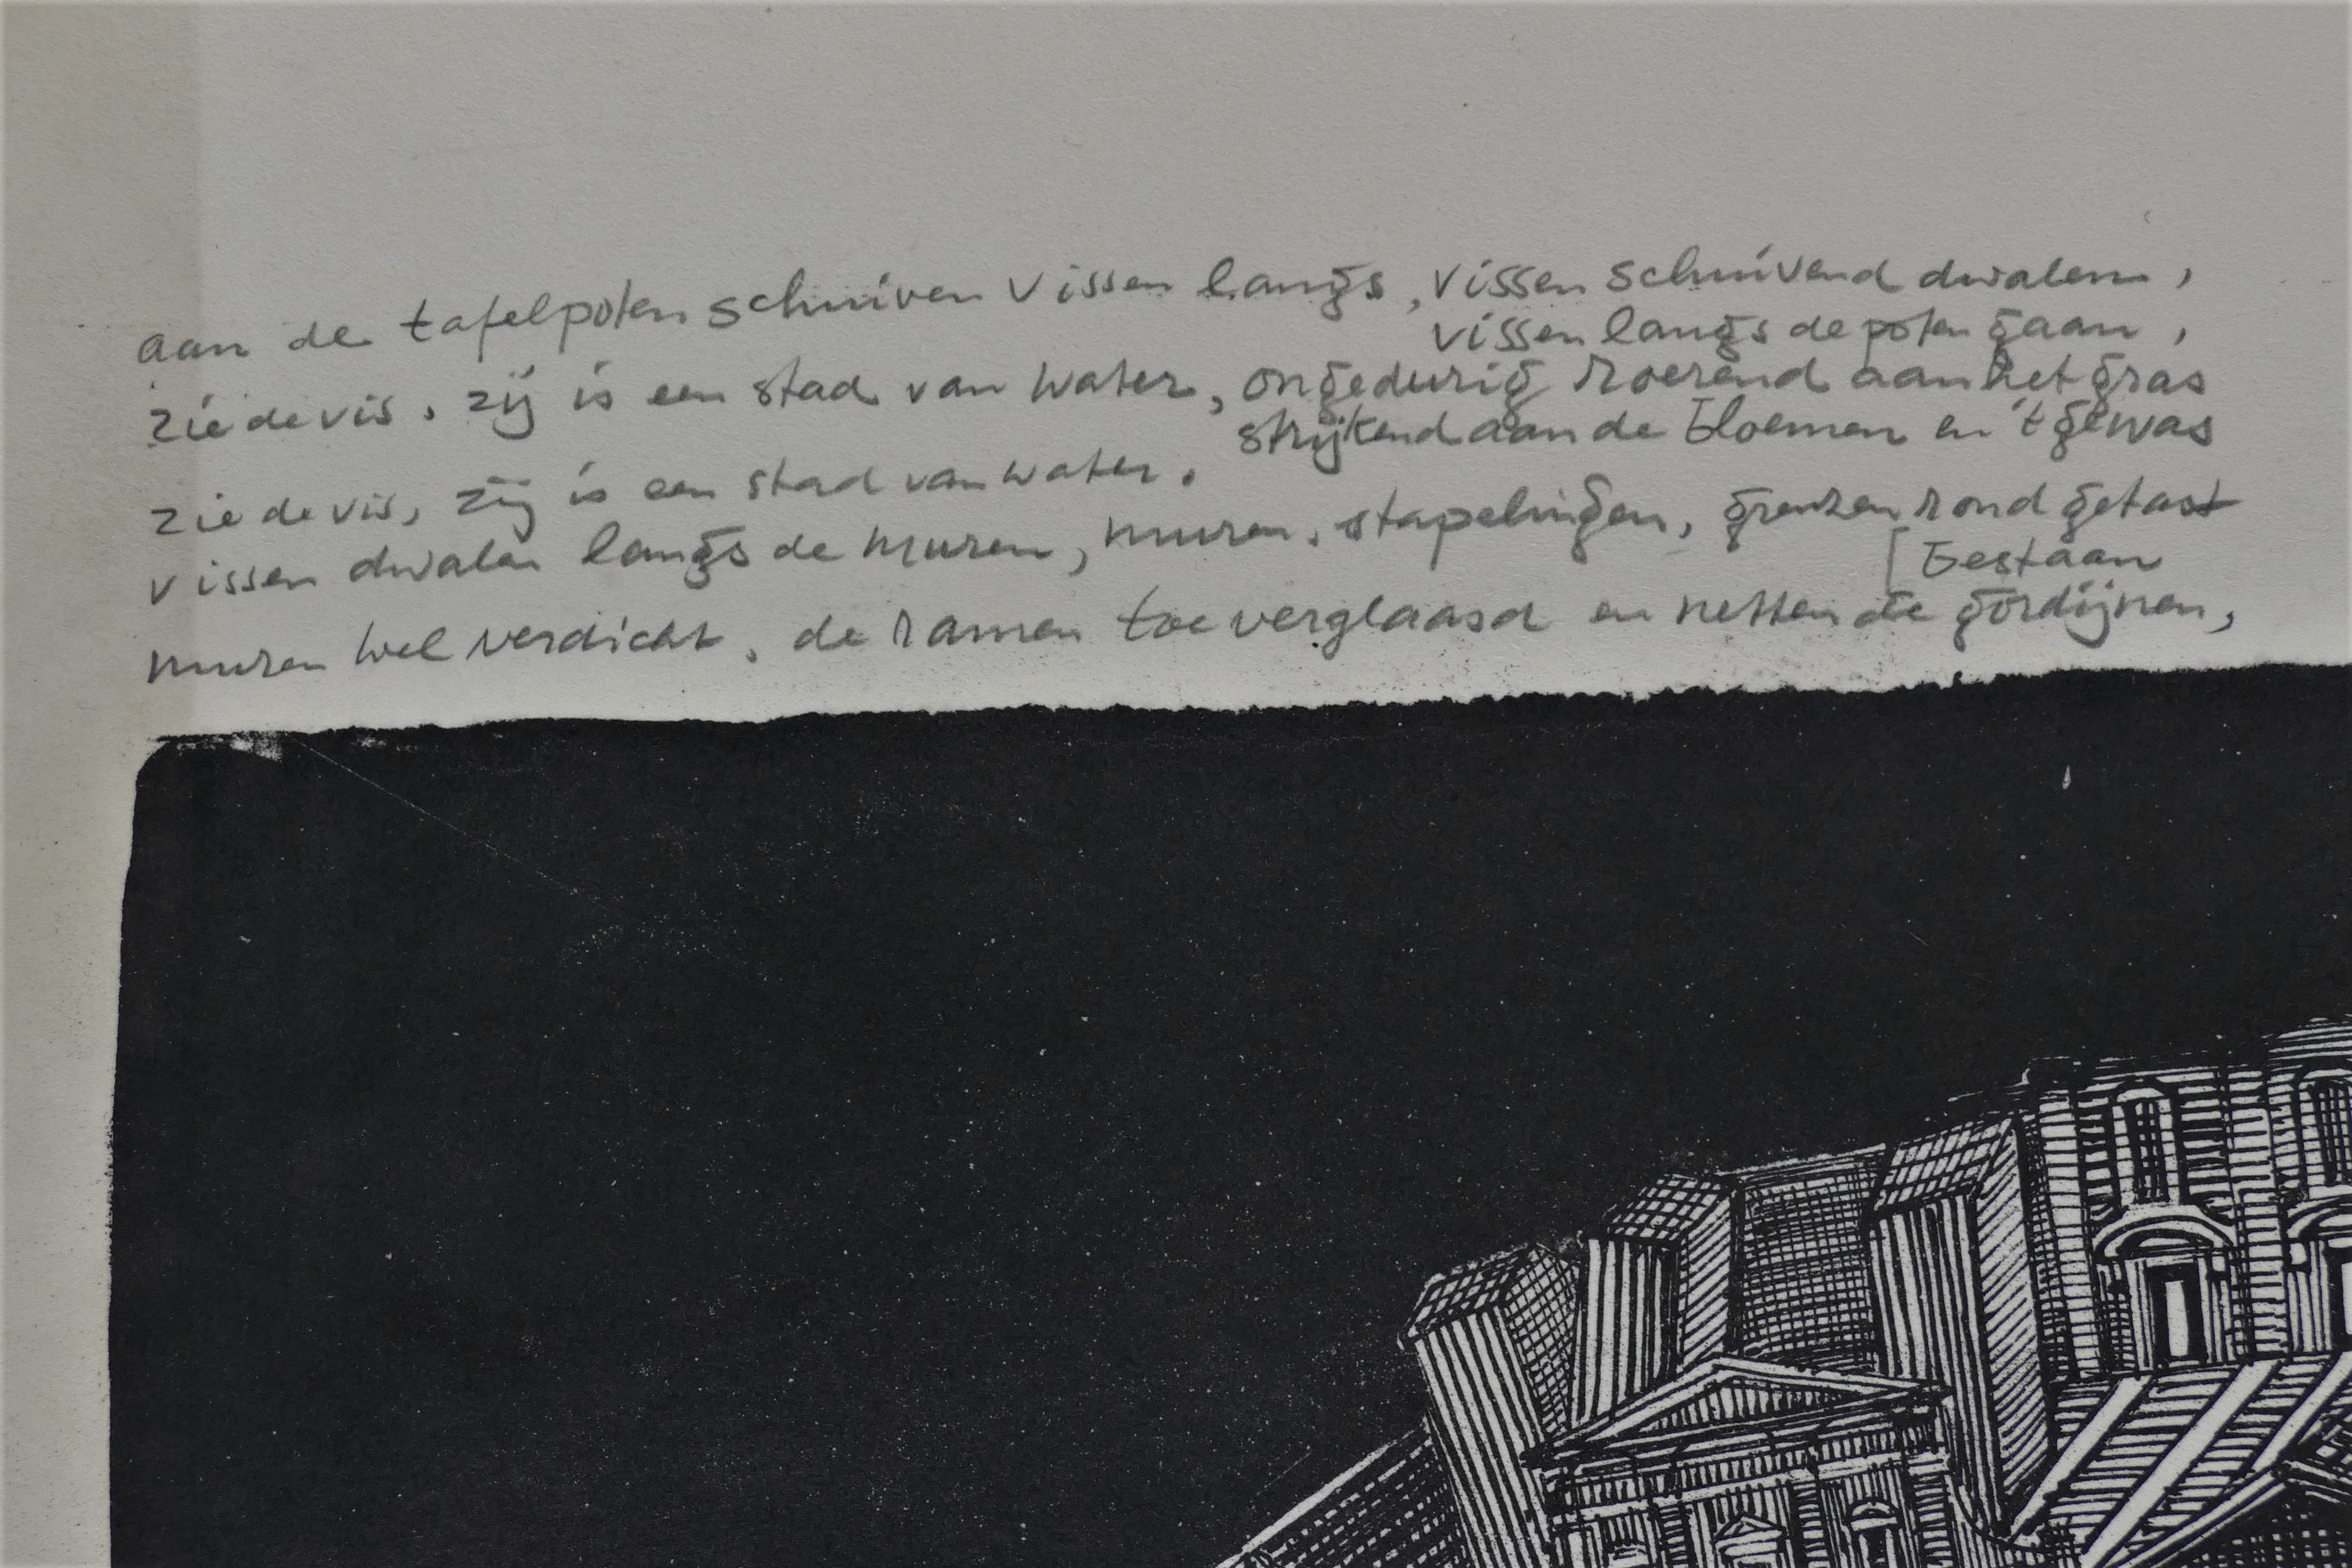 aan de tafelpoten schuiven vissen langs, vissen schuivend dwalen,
vissen langs de poten gaan,
zie de vis, zij is een stad van water, ongedurig roerend aan het gras
strijkend aan de bloemen en 't gewas
zie de vis, zij is een stad van water.
vissen dwalen langs de muren, muren, stapelingen, grenzen rond getast
[bestaan
muren wel verdicht, de ramen toe verglaasd en netten de gordijnen,